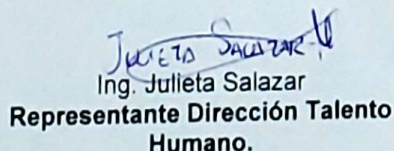 JULIETA SALAZAR
Ing. Julieta Salazar
Representante Dirección Talento
Humano.